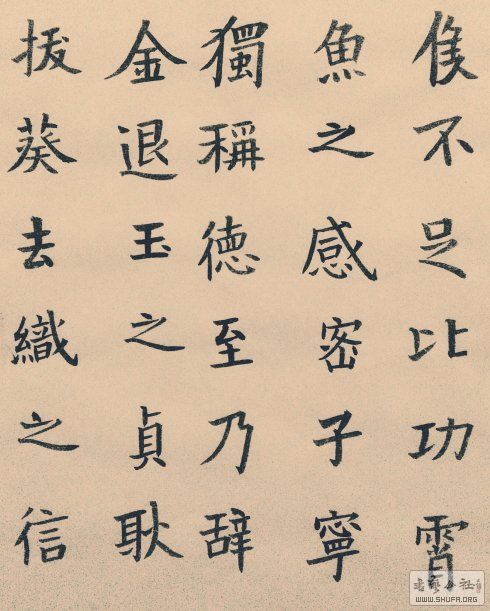 侯不足比功霄
魚之感密子寧
獨稱德至乃辞
金退玉之貞耿
拔葵去織之信
书艺公社
WWW.SHUFA.ORG